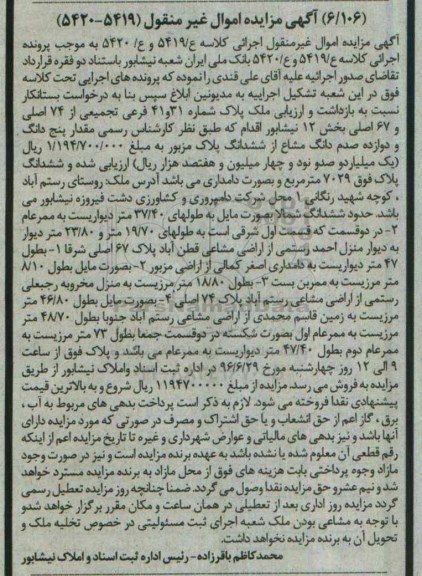 (۶/۱۰۶) آگهی مزایده اموال غیر منقول (۵۴۱۹-۵۴۲۰)
آگهی مزایده اموال غیرمنقول اجرائی کلاسه ع/۵۴۱۹ و ع/ ۵۴۲۰ به موجب پرونده
اجرائی کلاسه ع/۵۴۱۹ و ع/۵۴۲۰ بانک ملی ایران شعبه نیشابور باستناد دو فقره قرارداد
تقاضای صدور اجرائیه علیه آقای علی قندی را نموده که پرونده های اجرایی تحت کلاسه
فوق در این شعبه تشکیل اجراییه به مدیونین ابلاغ سپس بنا به درخواست بستانکار
نسبت به بازداشت و ارزیابی ملک پلاک شماره ۳۱ و ۴۱ فرعی تجمیعی از ۷۴ اصلی
و ۶۷ اصلی بخش ۱۲ نیشابور اقدام که طبق نظر کارشناس رسمی مقدار پنج دانگ
و دوازده صدم دانگ مشاع از ششدانگ پلاک مزبور به مبلغ ۱/۱۹۴/۷۰۰/۰۰۰ ریال
(یک میلیاردو صدو نود و چهار میلیون و هفتصد هزار ریال) ارزیابی شده و ششدانگ
پلاک فوق ۷۰۲۹ مترمربع و بصورت دامداری می باشد آدرس ملک: روستای رستم آباد
، کوچه شهید رنگانی ۱ محل شرکت دامپروری و کشاورزی دشت فیروزه نیشابور می
باشد. حدود ششدانگ شمالا بصورت مایل به طولهای ۳۷/۴۰ متر دیواریست به ممرعام
۲- در دوقسمت که قسمت اول شرقی است به طولهای ۱۹/۷۰ متر و ۲۳/۸۰ متر دیوار
به دیوار منزل احمد رستمی از اراضی مشاعی قطن آباد پلاک ۶۷ اصلی شرقا ۱- بطول
۴۷ متر دیواریست به دامداری اصغر کمالی از اراضی مزبور ۲- بصورت مایل بطول ۸/۱۰
متر مرزیست به ممربن بست ۳- بطول ۱۸/۸۰ متر مرزیست به منزل مخروبه رجبعلی
رستمی از اراضی مشاعی رستم آباد پلاک ۷۴ اصلی ۴- بصورت مایل بطول ۴۶/۸۰ متر
مرزیست به زمین قاسم محمدی از اراضی مشاعی رستم آباد جنوبا بطول ۴۸/۷۰ متر
مرزیست به ممرعام اول بصورت شکسته در دوقسمت جمعا بطول ۷۳ متر مرزیست به
ممرعام دوم بطول ۴۷/۴۰ متر دیواریست به ممرعام می باشد و پلاک فوق از ساعت
۹ الی ۱۲ روز چهارشنبه مورخ ۹۶/۶/۲۹ در اداره ثبت اسناد واملاک نیشابور از طریق
مزایده به فروش می رسد. مزایده از مبلغ ۱۱۹۴۷۰۰۰۰۰ ریال شروع و به بالاترین قیمت
پیشنهادی نقدا فروخته می شود. لازم به ذکر است پرداخت بدهی های مربوط به آب ،
برق ، گاز اعم از حق انشعاب و یا حق اشتراک و مصرف در صورتی که مورد مزایده دارای
آنها باشد و نیز بدهی های مالیاتی و عوارض شهرداری و غیره تا تاریخ مزایده اعم از اینکه
رقم قطعی آن معلوم شده یا نشده باشد به عهده برنده مزایده است و نیز در صورت وجود
مازاد وجوه پرداختی بابت هزینه های فوق از محل مازاد به برنده مزایده مسترد خواهد
شد و نیم عشرو حق مزایده نقدا وصول می گردد ضمنا چنانچه روز مزایده تعطیل رسمی
گردد مزایده روز اداری بعد از تعطیلی در همان ساعت و مکان مقرر برگزار خواهد شدو
با توجه به مشاعی بودن ملک شعبه اجرای ثبت مسئولیتی در خصوص تخلیه ملک و
تحویل آن به برنده مزایده نخواهد داشت.
محمدکاظم باقرزاده - رئیس اداره ثبت اسناد و املاک نیشابور